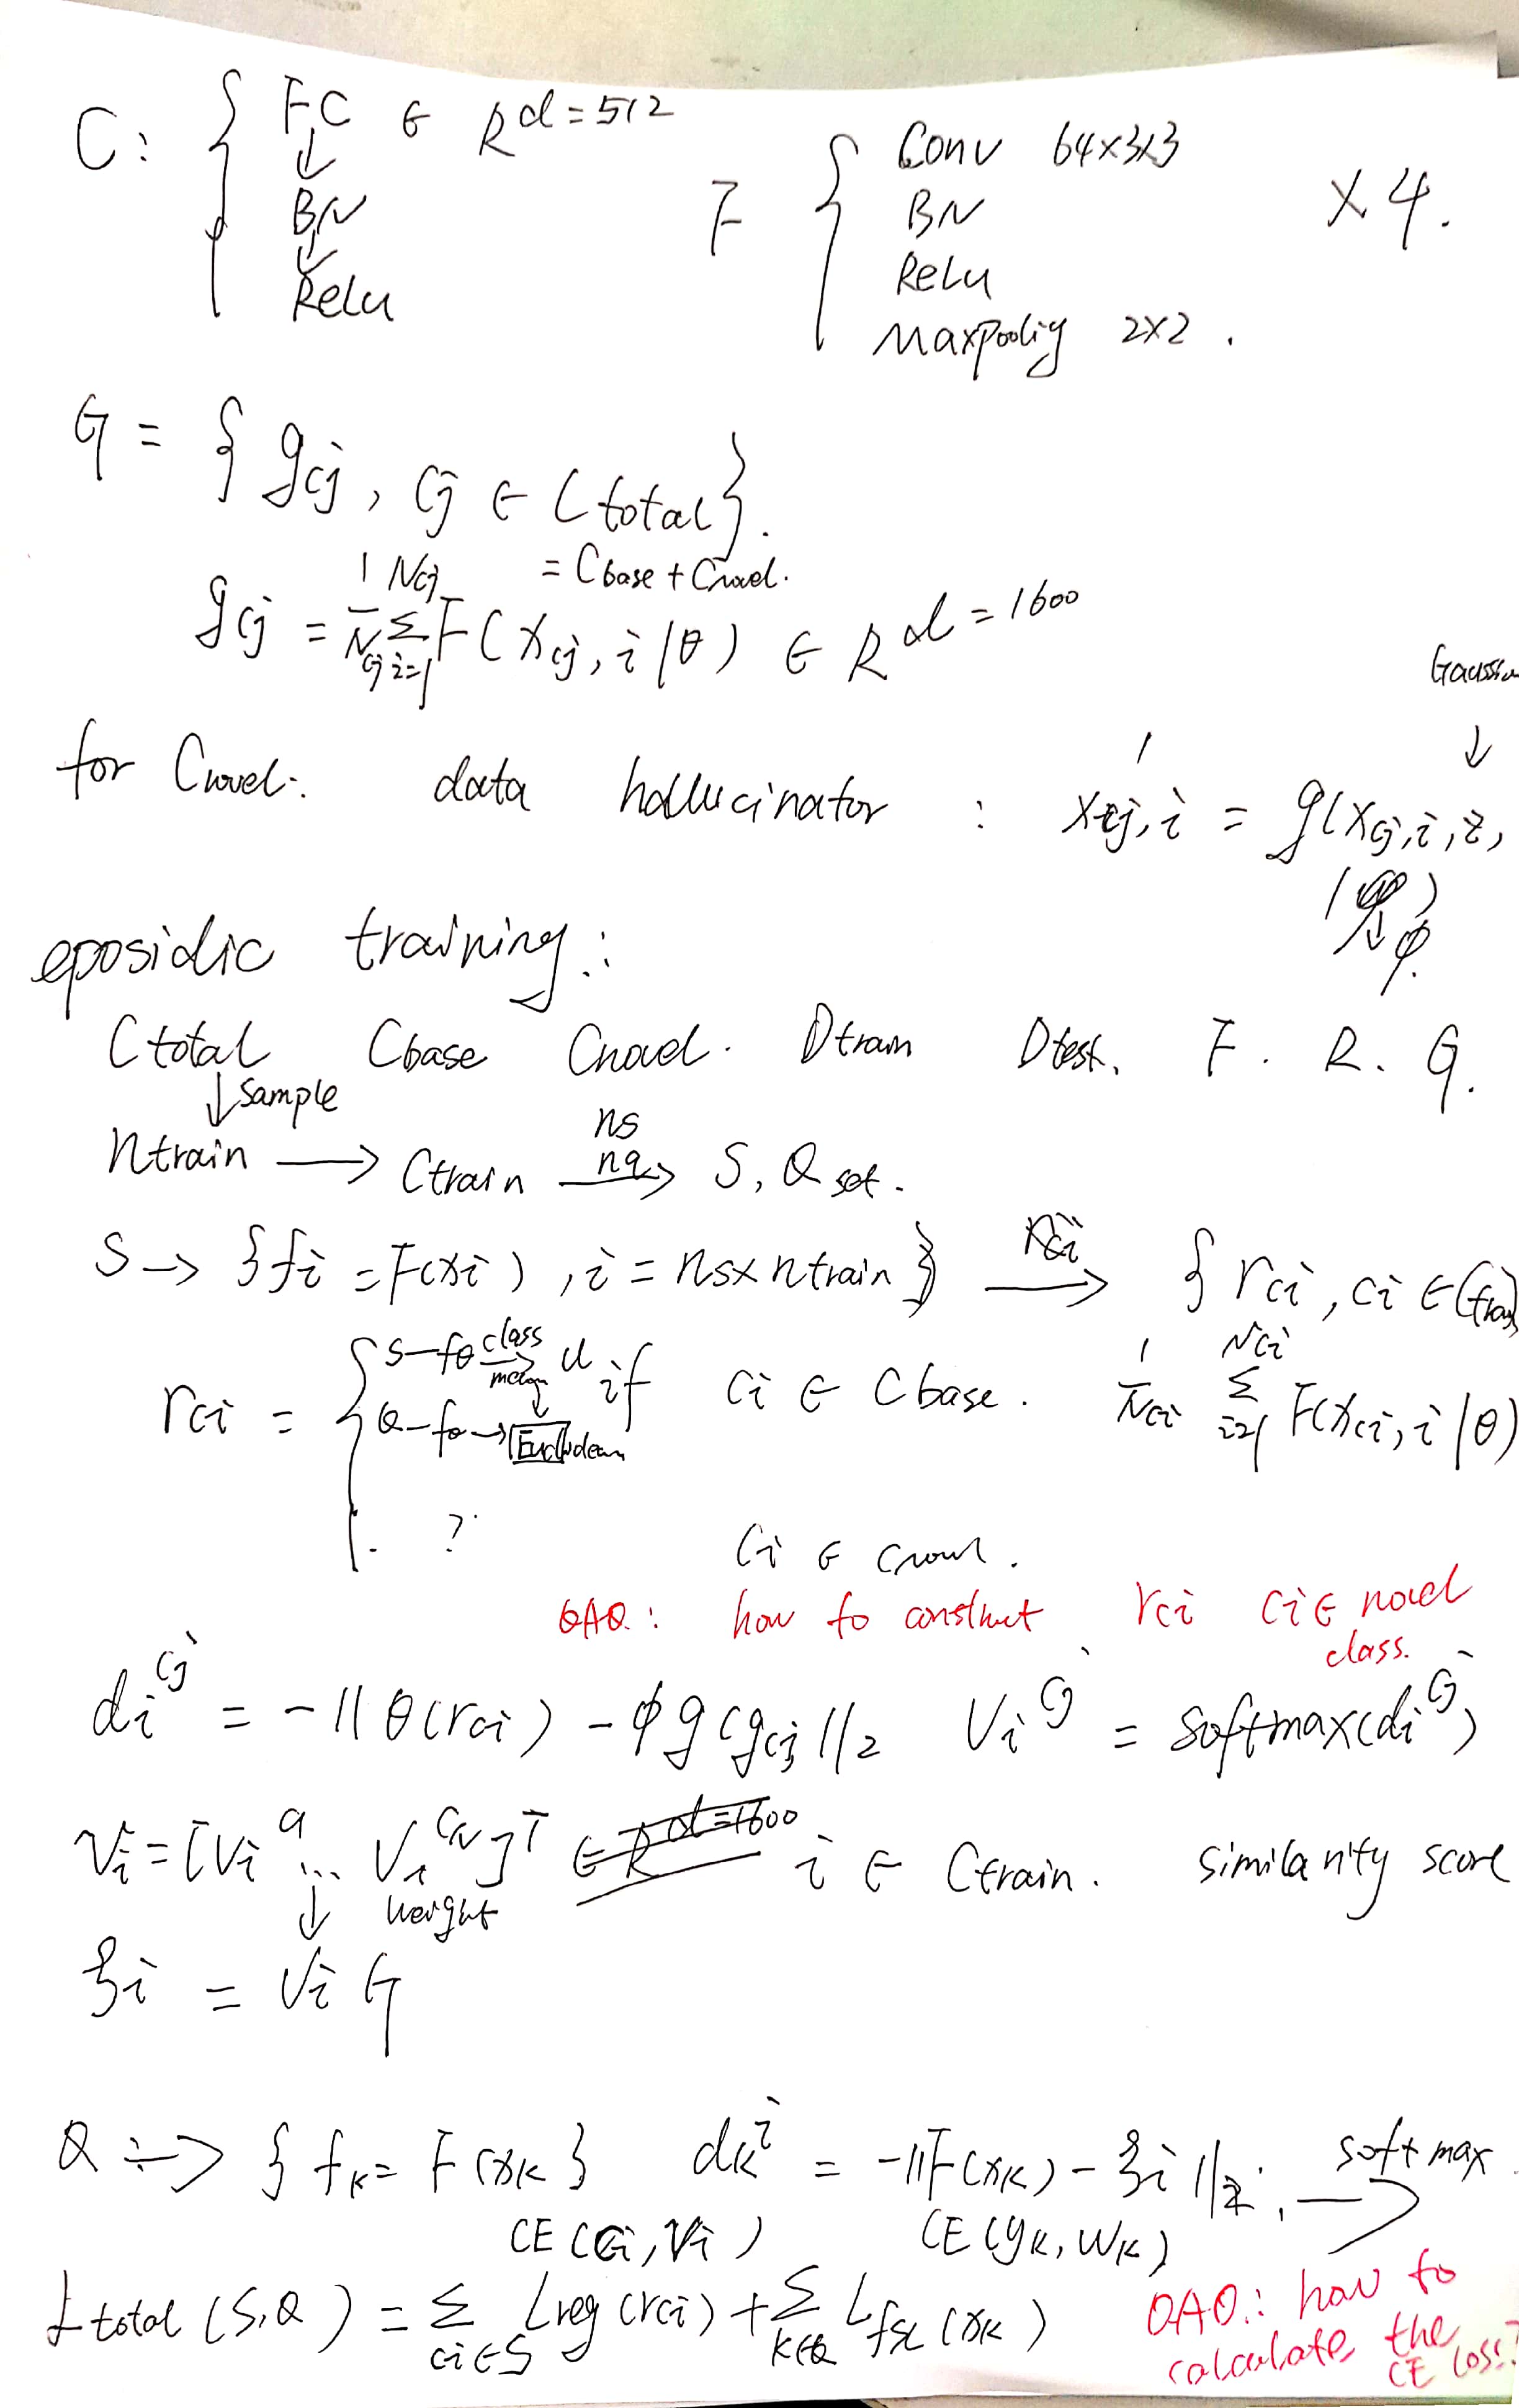 C: { FC ∈ R^d=512
↓
BN
↓
Relu
F { Conv 64×3×3
BN
Relu
Maxpoolig 2×2 .
× 4.
G = { g_cj , cj ∈ C total }.
= C base + C novel.
g_cj = 1/N_cj Σ_i=1^N_cj F ( x_cj, i | θ ) ∈ R^d=1600
Gaussian
↓
for C novel: data hallucinator : x'_cj, i = g( x_cj, i, z,
| φ )
eposidic training :
C total C base C novel. D train D test. F. R. G.
↓ sample
n train → C train ns nq → S, Q set.
S → { fi = F(xi) , i = ns × n train } → { r_ci , ci ∈ C train }
r_ci = { S – fθ class mean → u if ci ∈ C base. 1/N_ci Σ_i=1^N_ci F(x_ci, i | θ)
Q – fθ → Euclidean
. ? Ci ∈ C novel.
QAQ : how to construct r_ci ci ∈ novel
class.
di^cj = - || θ(r_ci) - φ g (g_cj ||2 Vi^cj = softmax(di^cj)
vi = [ Vi^c1 ... Vi^cN ]^T ∈ R^d=1600 i ∈ C train. similarity score
↓ weight
ξi = Vi G
Q → { f_k = F (x_k } d_k^i = - || F (x_k) - ξi ||2 . softmax →
CE (Ci, Vi ) CE (y_k, w_k)
L total (S, Q ) = Σ_ci∈S L reg (r_ci) + Σ_k∈Q L_fsl (x_k)
QAQ : how to
calculate the
CE loss?